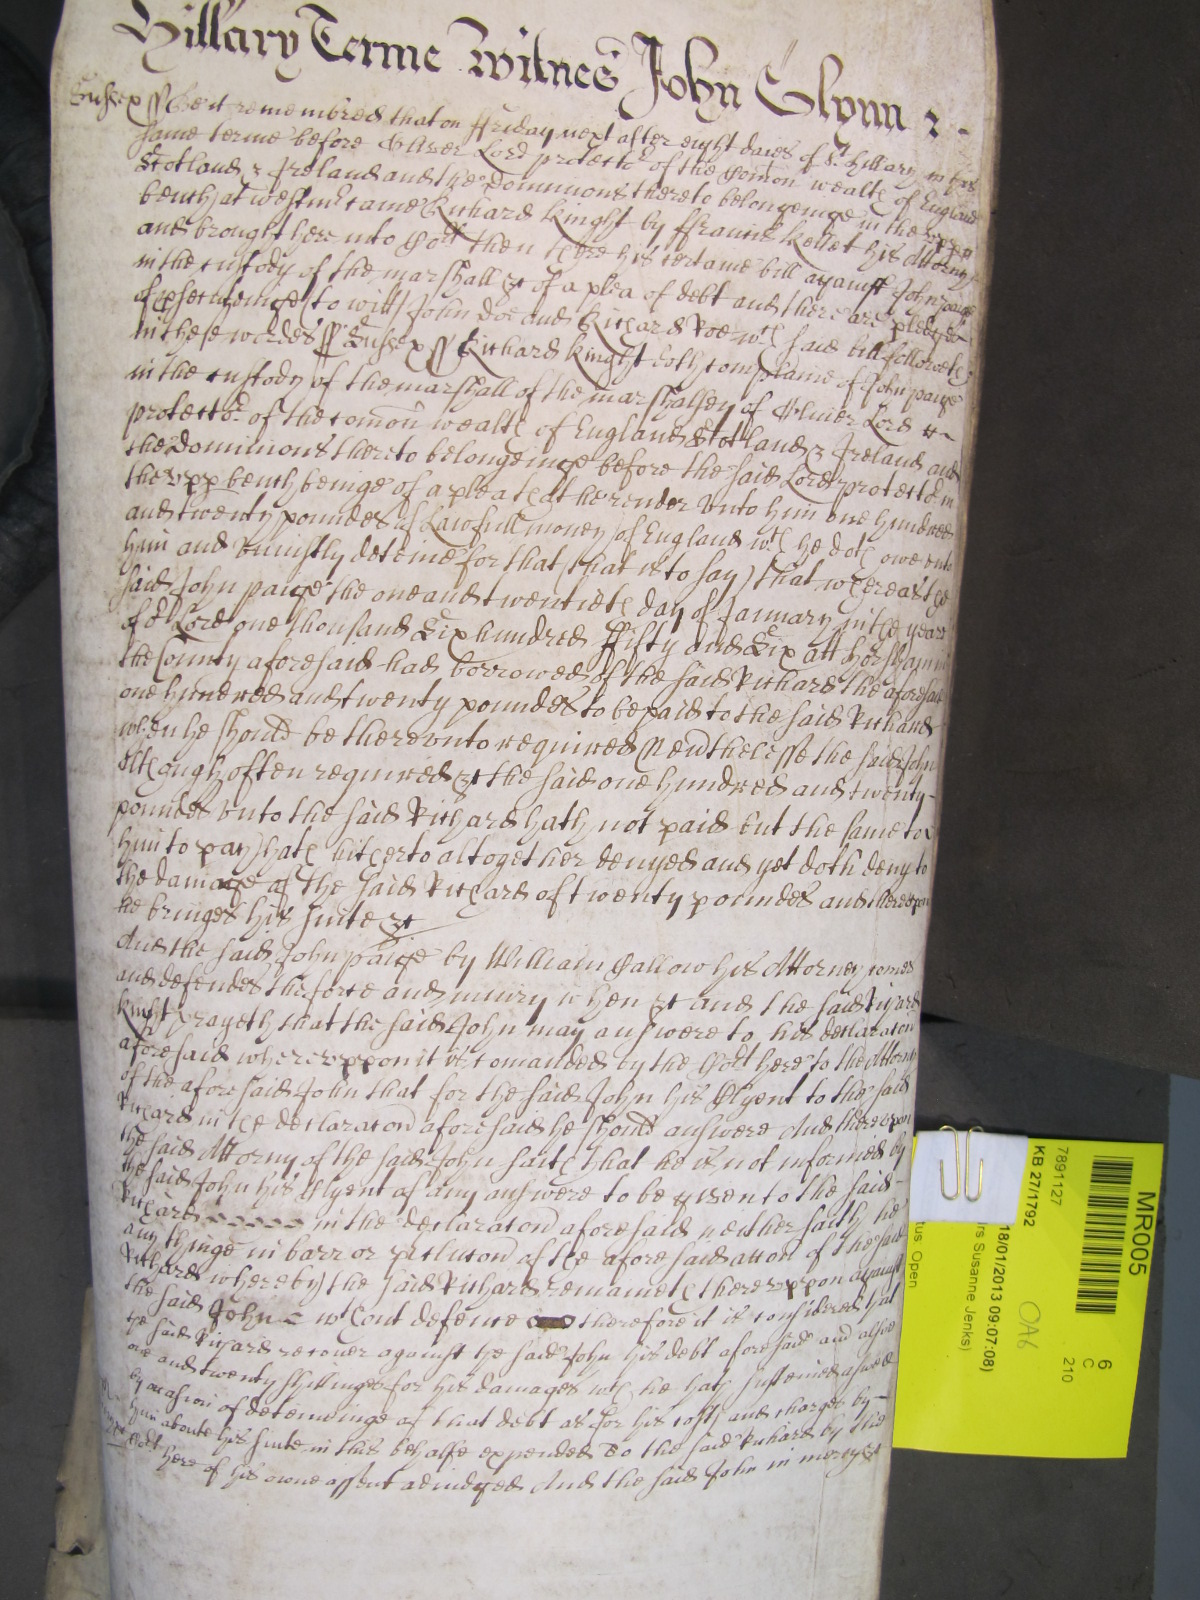 Hillary Terme Witnes John Glynn &
Sussex ss Be it remembred that on ffriday next after eight daies of St. Hillary in this
same terme before Oliver Lord protector of the Comon wealth of England
Scotland & Ireland and the Dominions thereto belongeinge in the upper
bench at westmr came Richard Kinght by ffrancis Kellet his Attorny
and brought here into Cort then there his certaine bill against John paige
in the custody of the marshall &c of a plea of debt and there are pledges
of prosecutinge (to witt) John Doe and Richard Roe wch said bill followeth
in these wordes ss Sussex ss Richard Kinght doth complaine of John paige
in the custody of the marshall of the marshalsey of Oliver Lord
protector of the comon wealth of England Scotland & Ireland and
the Dominions thereto belongeinge before the said Lord protector in
the upp bench beinge of a plea that he render unto him one hundred
and twenty poundes of Lawfull money of England wch he doth owe unto
him and uniustly deteine for that (that is to say) that whereas the
said John paige the one and twentieth day of January in the yeare
of or Lord one thousand Six hundred ffifty and Six att Horsham in
the County aforesaid had borrowed of the said Richard the aforesaid
one hundred and twenty poundes to be paid to the said Richard
when he should be thereunto required Nevthelesse the said John
Although often required &c the said one hundred and twenty
poundes unto the said Richard hath not paid but the same to
him to pay hath hitherto altogether denyed and yet doth deny to
the damage of the said Richard of twenty poundes and thereupon
he bringes his suite &c
And the said John paige by William Callow his Attorney comes
and defendes the force and iniury when &c and the said Richard
Knight prayeth that the said John may answere to his declaracon
aforesaid whereuppon it is comanded by the Cort here to the Attorny
of the aforesaid John that for the said John his Clyent to the said
Richard in the declaracon aforesaid he should answere And thereupon
the said Attorny of the said John saith that he is not informed by
the said John his Clyent of any answere to be given to the said
Richard in the declaracon aforesaid neither saith he
any thinge in barr or preclucon of the aforesaid accon of the said
Richard whereby the said Richard remaineth thereuppon against
the said John wthout defence therefore it is considered that
the said Richard recover against the said John his debt aforesaid and alsoe
one and twenty shillinges for his damages wch he hath susteined aswell
by occasion of deteininge of that debt as for his costs and charges by
him aboute his suite in this behalfe expended to the said Richard by the
Cort here of his owne assent adiudged And the said John in mercy &c
MR005
6
C
210
7891127
KB 27/1792
OA6
18/01/2013 09:07:08)
rs Susanne Jenks)
tus Open